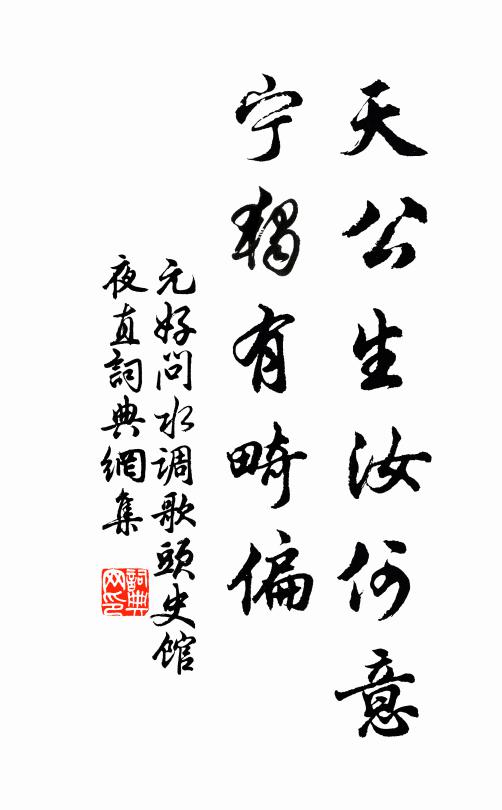 天公生汝何意
宁独有畸偏
元好问水调歌头史馆
夜直詞典網集
詞典網印